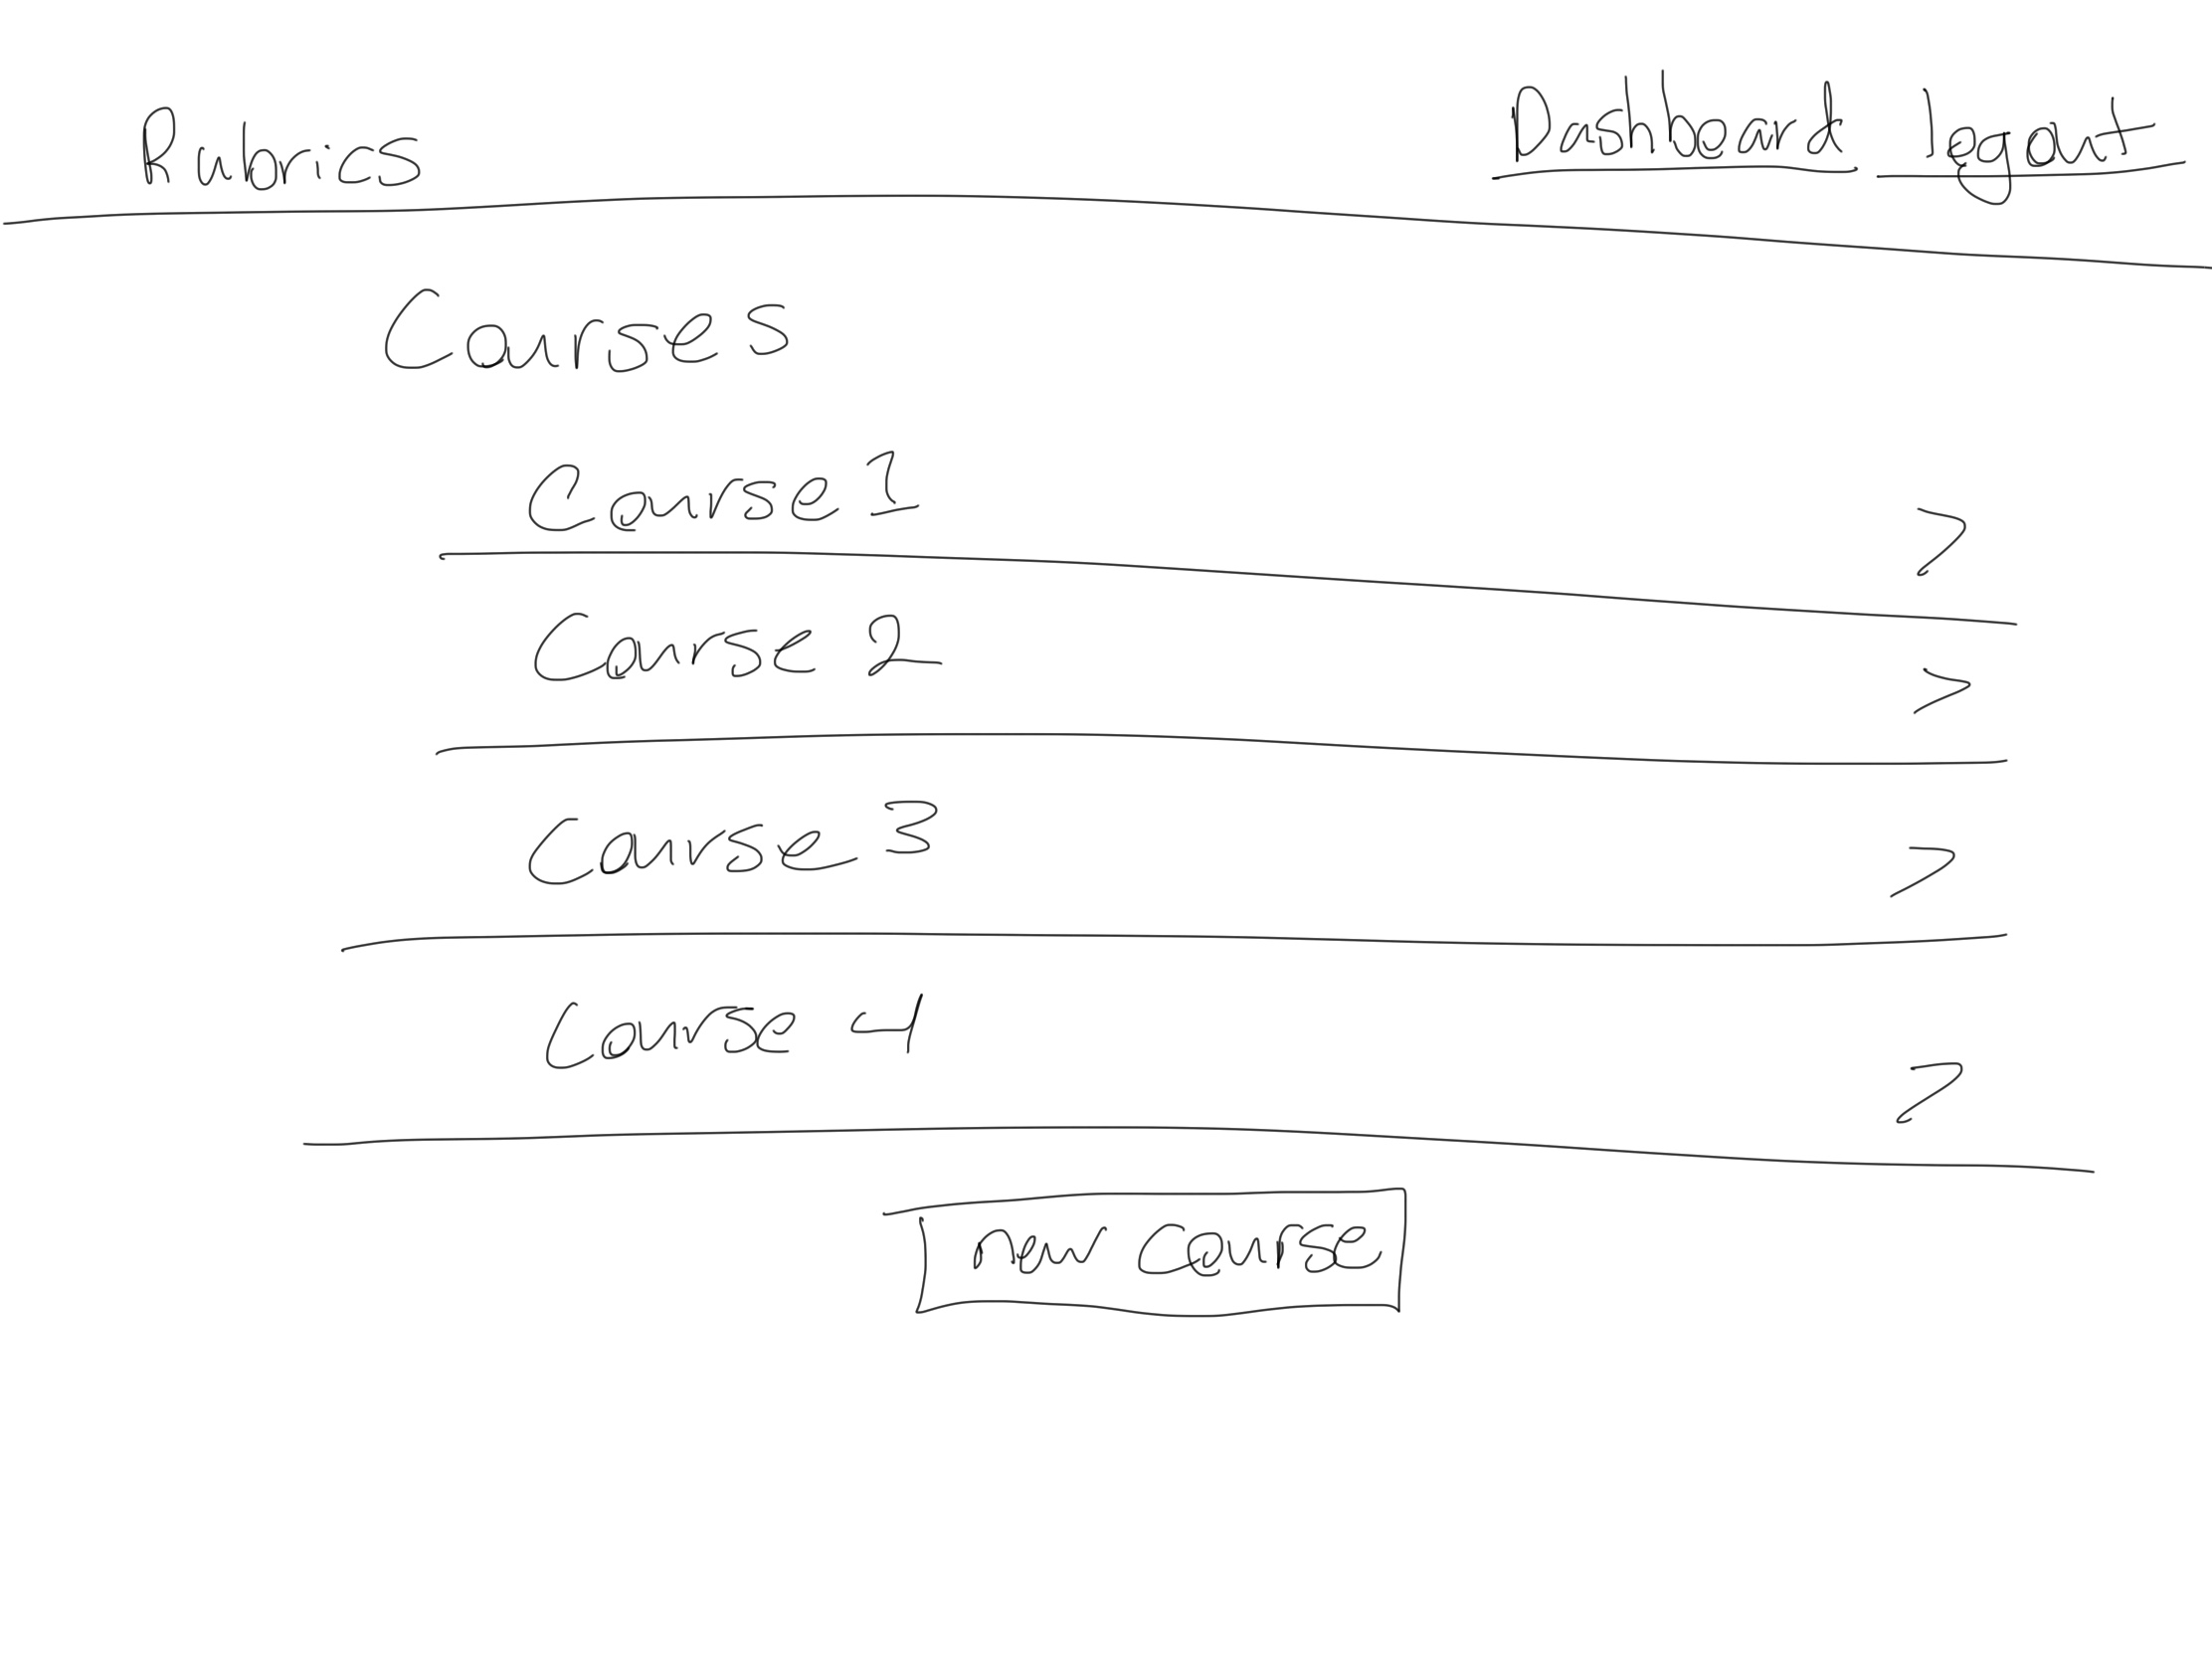 Rubrics Dashboard logout
Courses
Course 1 >
Course 2 >
Course 3 >
Course 4 >
new course